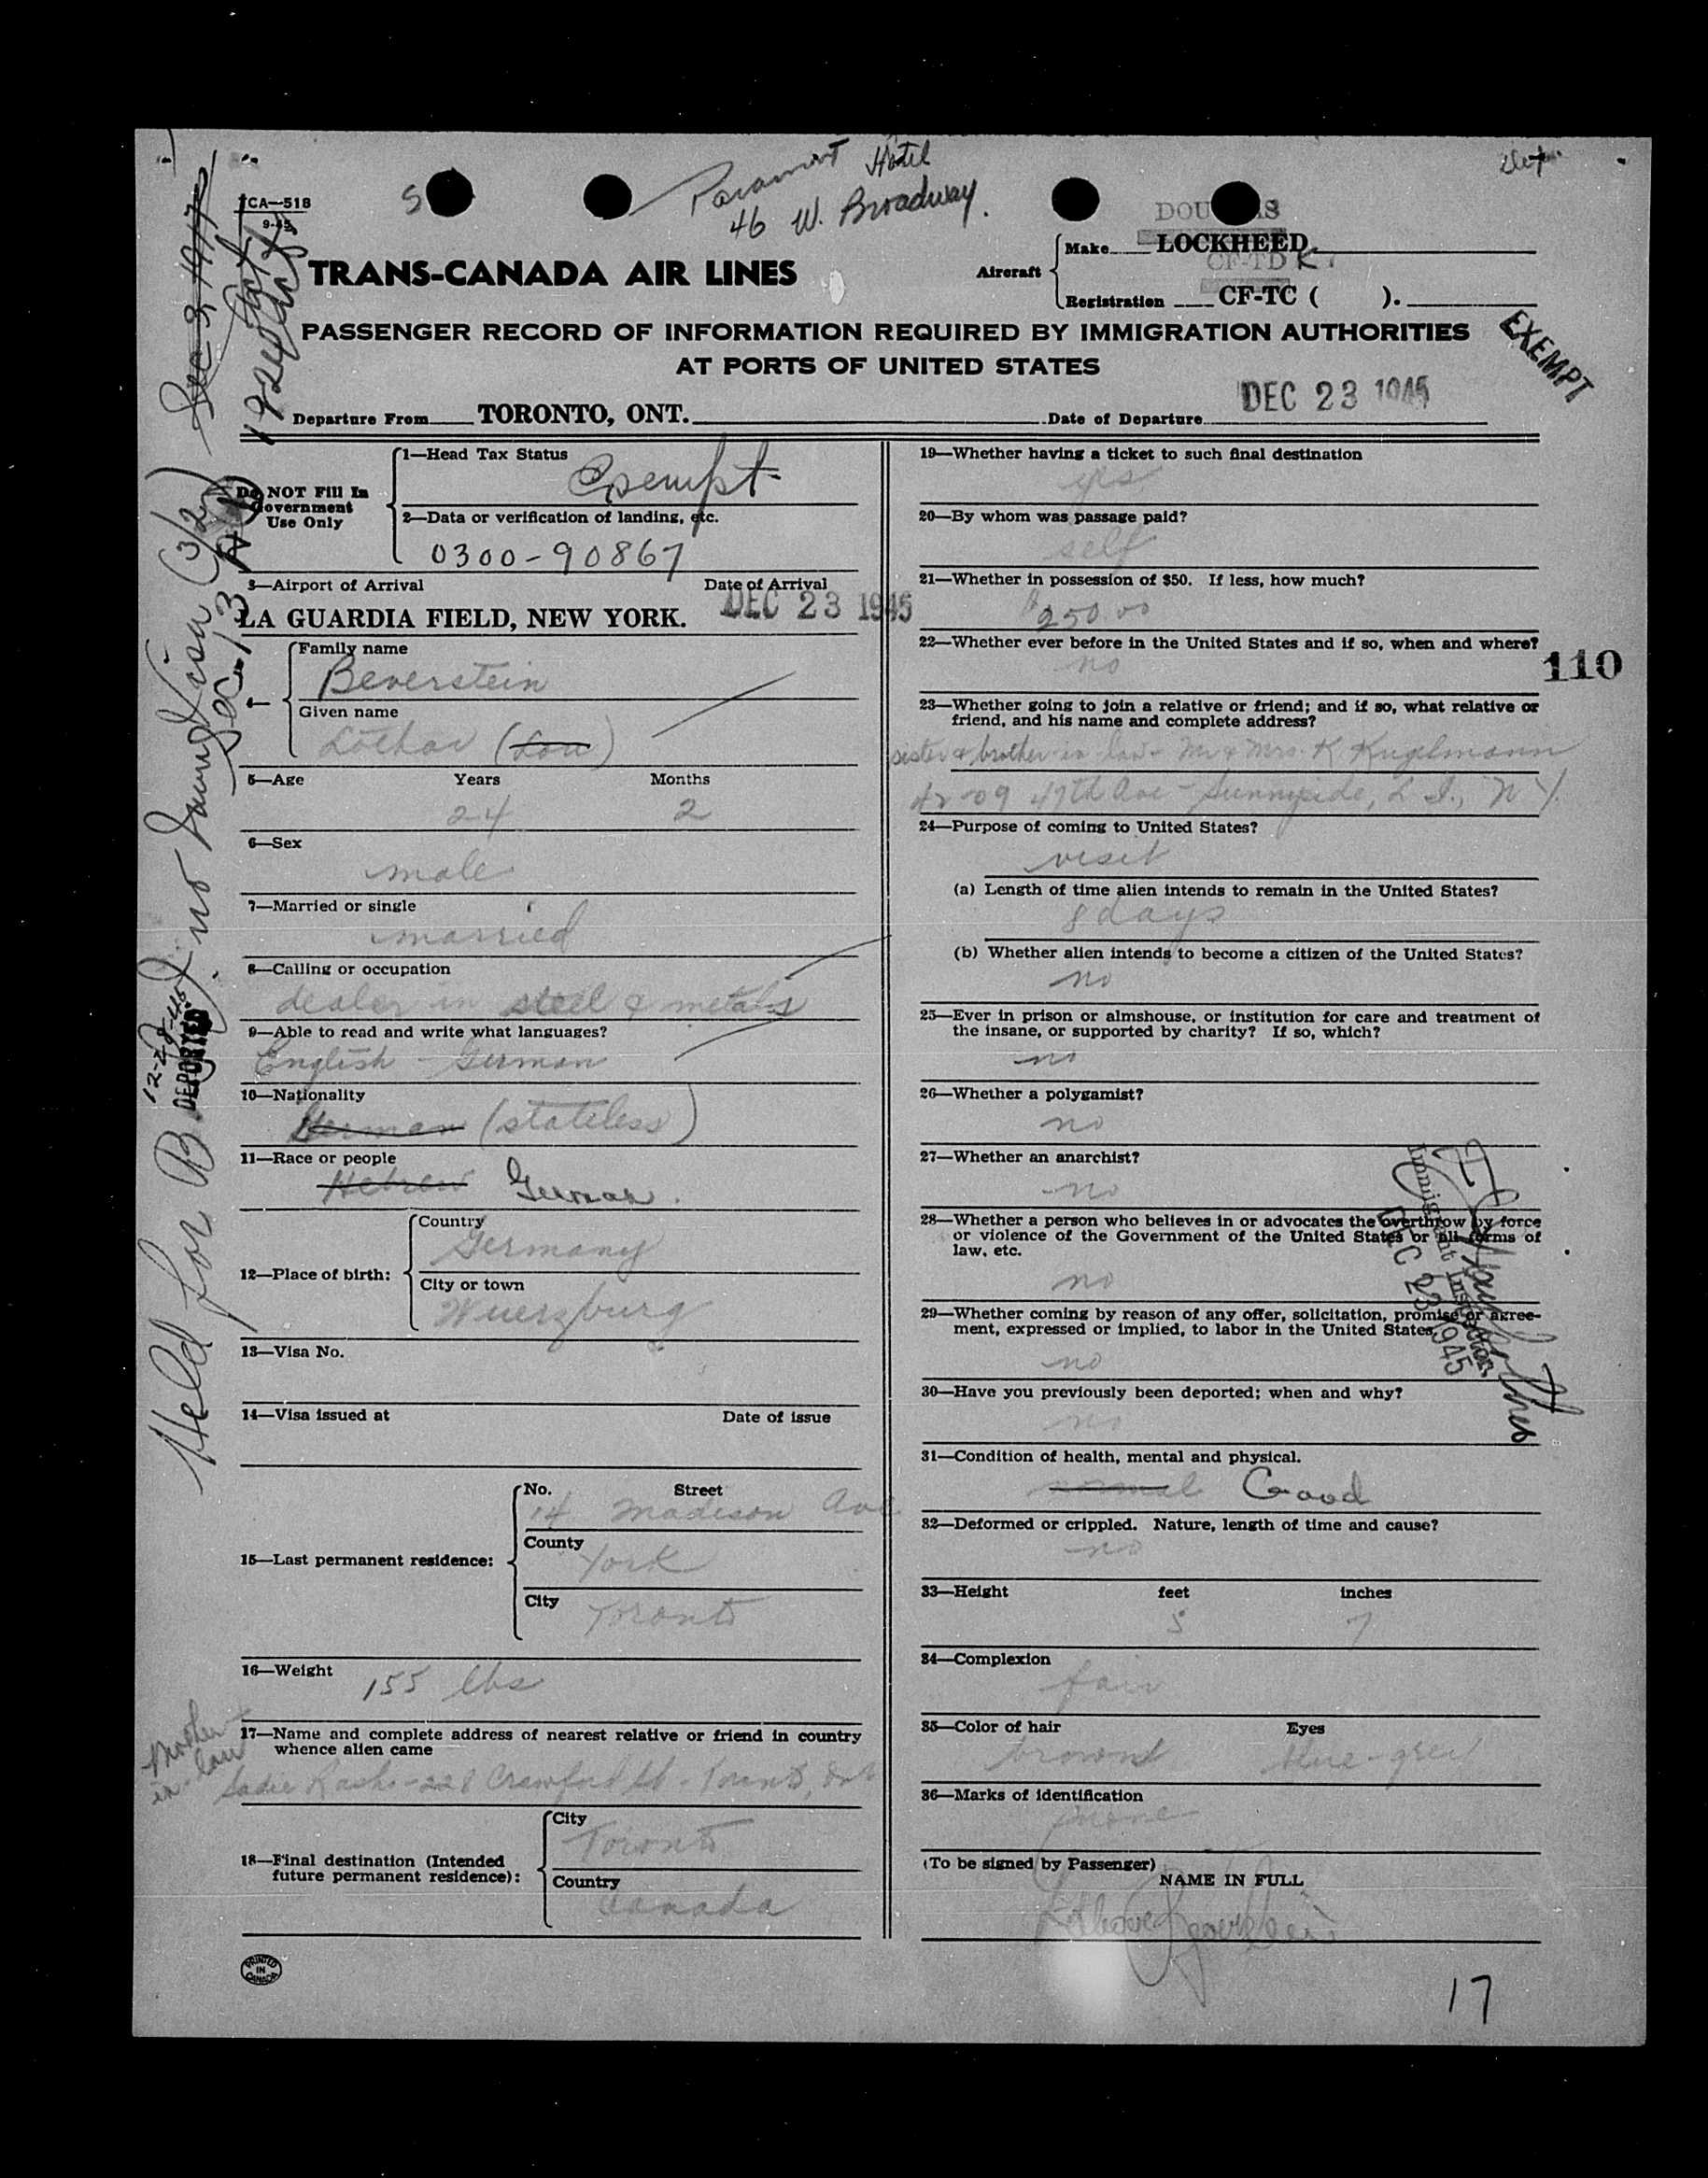 Paramount Hotel
46 W. Broadway.
TCA—518
9-45
DOUGLAS
Make LOCKHEED
CF-TD K
Aircraft
Registration CF-TC ( ).
TRANS-CANADA AIR LINES
PASSENGER RECORD OF INFORMATION REQUIRED BY IMMIGRATION AUTHORITIES
AT PORTS OF UNITED STATES
EXEMPT
Departure From TORONTO, ONT. Date of Departure DEC 23 1945
Do NOT Fill In
Government
Use Only
1—Head Tax Status
Exempt
2—Data or verification of landing, etc.
0300-90867
3—Airport of Arrival Date of Arrival
LA GUARDIA FIELD, NEW YORK. DEC 23 1945
4
Family name
Beverstein
Given name
Lothar (Lou)
5—Age Years Months
24 2
6—Sex
male
7—Married or single
married
8—Calling or occupation
dealer in steel & metals
9—Able to read and write what languages?
English - German
10—Nationality
German (stateless)
11—Race or people
Hebrew German.
12—Place of birth:
Country
Germany
City or town
Wuerzburg
13—Visa No.
14—Visa issued at Date of issue
15—Last permanent residence:
No. Street
14 Madison Ave
County
York
City
Toronto
16—Weight
155 lbs
17—Name and complete address of nearest relative or friend in country
whence alien came
mother in law
Sadie - 228 Crawford St - Toronto, Ont
18—Final destination (Intended
future permanent residence):
City
Toronto
Country
Canada
PRINTED IN CANADA
19—Whether having a ticket to such final destination
yes
20—By whom was passage paid?
self
21—Whether in possession of $50. If less, how much?
$250.00
22—Whether ever before in the United States and if so, when and where?
no
110
23—Whether going to join a relative or friend; and if so, what relative or
friend, and his name and complete address?
sister & brother in law - Mr & Mrs. K Kugelmann
42-09 47th Ave - Sunnyside, L I., N Y.
24—Purpose of coming to United States?
visit
(a) Length of time alien intends to remain in the United States?
8 days
(b) Whether alien intends to become a citizen of the United States?
no
25—Ever in prison or almshouse, or institution for care and treatment of
the insane, or supported by charity? If so, which?
no
26—Whether a polygamist?
no
27—Whether an anarchist?
no
28—Whether a person who believes in or advocates the overthrow by force
or violence of the Government of the United States or all forms of
law, etc.
no
29—Whether coming by reason of any offer, solicitation, promise or agree-
ment, expressed or implied, to labor in the United States.
no
Immigrant Inspector
DEC 23 1945
30—Have you previously been deported; when and why?
no
31—Condition of health, mental and physical.
normal Good
32—Deformed or crippled. Nature, length of time and cause?
no
33—Height feet inches
5 7
34—Complexion
fair
35—Color of hair Eyes
brown blue-grey
36—Marks of identification
none
(To be signed by Passenger)
NAME IN FULL
Lothar Beverstein
17
Held for B
DEPORTED